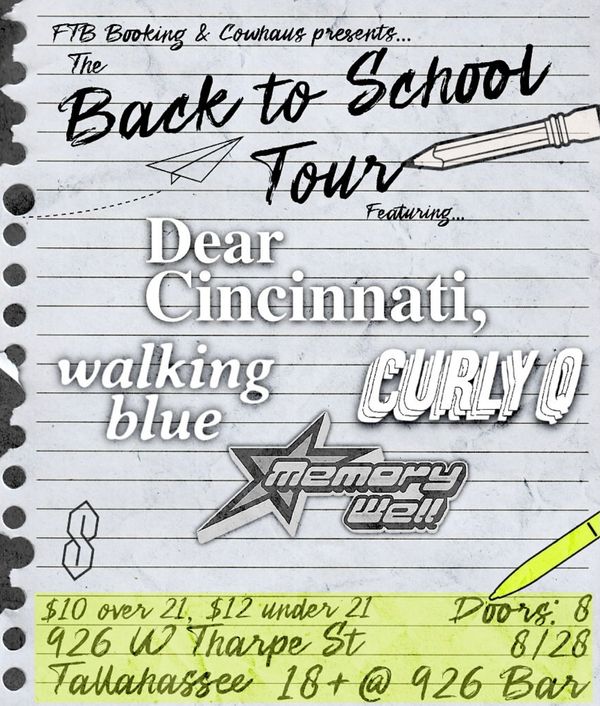 FTB Booking & Cowhaus presents...
The
Back to School
Tour
Featuring...
Dear
Cincinnati,
walking
blue
CURLY Q
memory
well
$10 over 21, $12 under 21
Doors: 8
926 W Tharpe St
8/28
Tallahassee 18+ @ 926 Bar